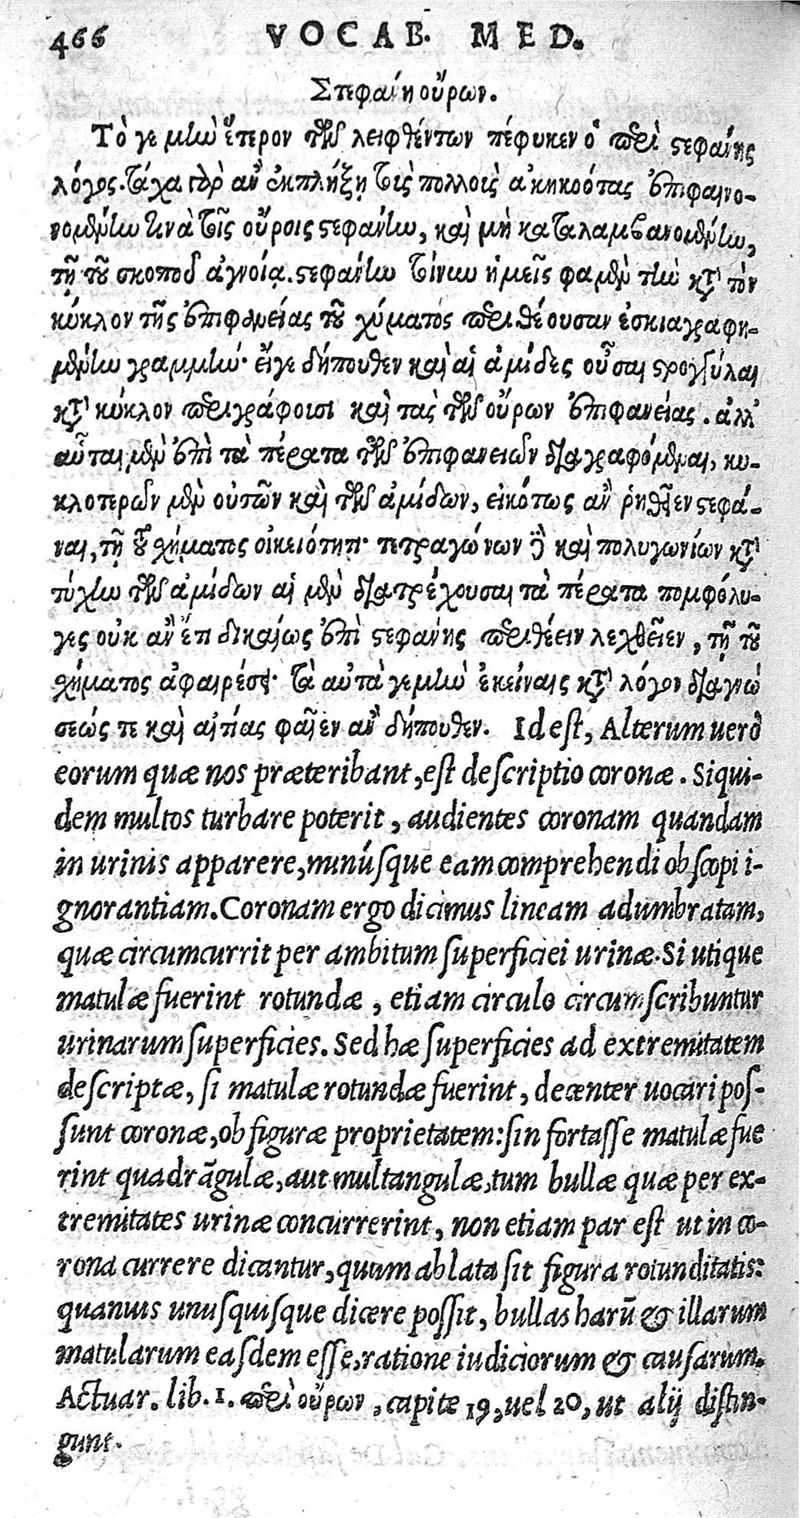 466 VOCAB. MED.
Στεφάνη οὔρων.
Τὸ γε μὴν ἕτερον τῶν λειφθέντων πέφυκεν ὁ περὶ στεφάνης
λόγος. τάχα γὰρ ἂν ἐκπλήξῃ τοὺς πολλοὺς ἀκηκοότας ἐπιφαινο-
νομένην τινὰ τοῖς οὔροις στεφάνην, καὶ μὴ καταλαμβανομένην,
τῇ τοῦ σκοποῦ ἀγνοίᾳ. στεφάνην τοίνυν ἡμεῖς φαμὲν τὴν κατὰ τὸν
κύκλον τῆς ἐπιφανείας τοῦ χύματος περιθέουσαν ἐσκιαγραφη-
μένην γραμμήν· εἴγε δήπουθεν καὶ αἱ ἀμίδες οὖσαι στρογγύλαι
κατὰ κύκλον περιγράφοισι καὶ τὰς τῶν οὔρων ἐπιφανείας. ἀλλ'
αὗται μὲν ἐπὶ τὰ πέρατα τῶν ἐπιφανειῶν διαγραφόμεναι, κυ-
κλοτερῶν μὲν οὐτῶν καὶ τῶν ἀμίδων, εἰκότως ἂν ῥηθεῖεν στεφά-
ναι, τῇ τοῦ σχήματος οἰκειότητι· τετραγώνων δὲ καὶ πολυγωνίων κατὰ
τύχην τῶν ἀμίδων αἱ μὲν διατρέχουσαι τὰ πέρατα πομφόλυ-
γες οὐκ ἂν ἔτι δικαίως ἐπὶ στεφάνης περιθέειν λεχθεῖεν, τῇ τοῦ
σχήματος ἀφαιρέσει· τὰ αὐτὰ γε μὴν ἐκείναις κατὰ λόγον διαγνώ
σεώς τε καὶ αἰτίας φαῖεν ἂν δήπουθεν. Id est, Alterum uerò
eorum quæ nos præteribant, est descriptio coronæ. Siqui-
dem multos turbare poterit, audientes coronam quandam
in urinis apparere, minúsque eam comprehendi ob scopi i-
gnorantiam. Coronam ergo dicimus lineam adumbratam,
quæ circumcurrit per ambitum superficiei urinæ. Si utique
matulæ fuerint rotundæ, etiam circulo circumscribuntur
urinarum superficies. Sed hæ superficies ad extremitatem
descriptæ, si matulæ rotundæ fuerint, decenter uocari pos-
sunt coronæ, ob figuræ proprietatem: sin fortasse matulæ fue
rint quadrāgulæ, aut multangulæ, tum bullæ quæ per ex-
tremitates urinæ concurrerint, non etiam par est ut in co-
rona currere dicantur, quum ablata sit figura rotunditatis:
quamuis unusquisque dicere possit, bullas harū & illarum
matularum easdem esse, ratione iudiciorum & causarum.
Actuar. lib. 1. περὶ οὔρων, capite 19, uel 20, ut alij distin-
gunt.